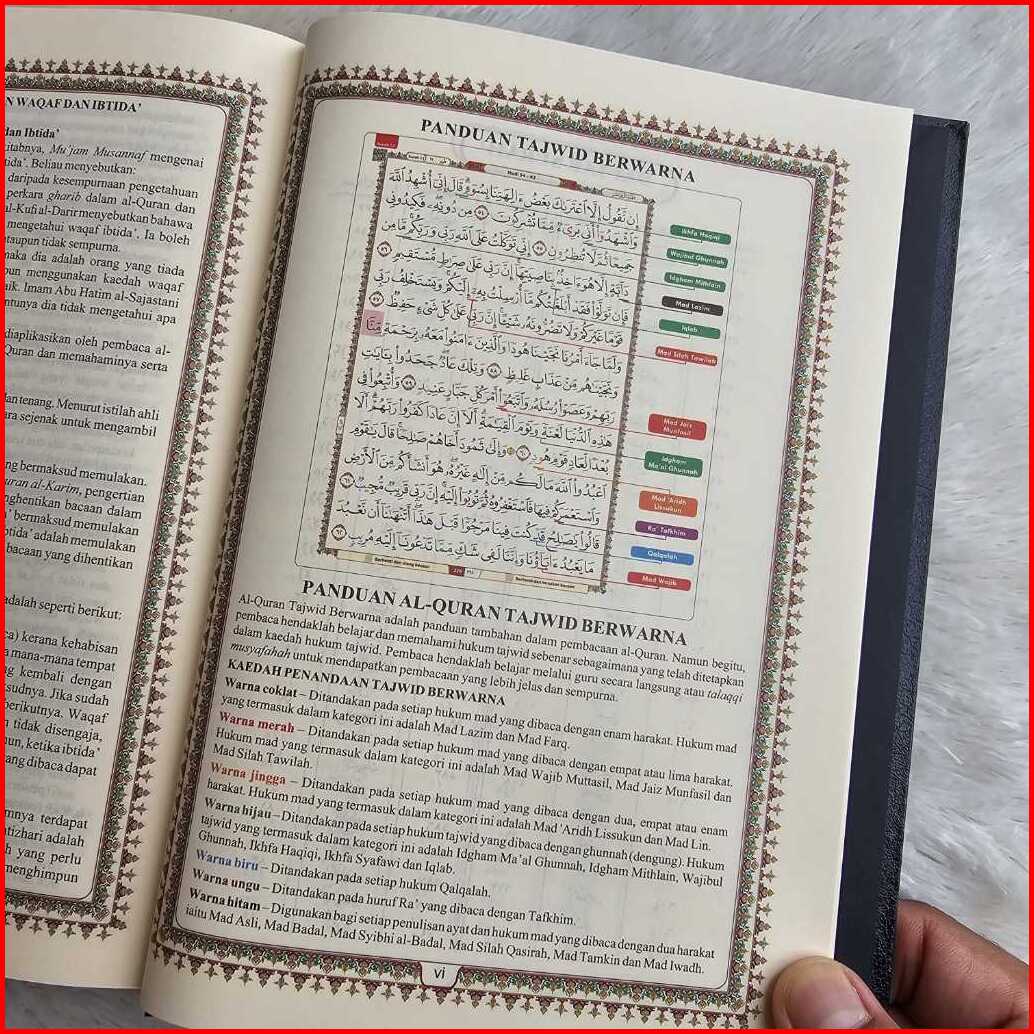 N WAQAF DAN IBTIDA'
dan Ibtida'
kitabnya, Mu'jam Musannaf mengenai
tida'. Beliau menyebutkan:
daripada kesempurnaan pengetahuan
perkara gharib dalam al-Quran dan
al-Kufi al-Darir menyebutkan bahawa
mengetahui waqaf ibtida'. Ia boleh
ataupun tidak sempurna.
maka dia adalah orang yang tiada
pun menggunakan kaedah waqaf
aik. Imam Abu Hatim al-Sajastani
ntunya dia tidak mengetahui apa
diaplikasikan oleh pembaca al-
Quran dan memahaminya serta
dan tenang. Menurut istilah ahli
ara sejenak untuk mengambil
ng bermaksud memulakan.
uran al-Karim, pengertian
nghentikan bacaan dalam
' bermaksud memulakan
btida' adalah memulakan
bacaan yang dihentikan
adalah seperti berikut:
ca) kerana kehabisan
a mana-mana tempat
g kembali dengan
sudnya. Jika sudah
berikutnya. Waqaf
n tidak disengaja,
nun, ketika ibtida'
yang dibaca dapat
mnya terdapat
ntizhari adalah
h yang perlu
menghimpun
PANDUAN TAJWID BERWARNA
إِن نَّقُولُ إِلَّا ٱعْتَرَىٰكَ بَعْضُ ءَالِهَتِنَا بِسُوٓءٍ قَالَ إِنِّيٓ أُشْهِدُ ٱللَّهَ
وَٱشْهَدُوٓا۟ أَنِّي بَرِيٓءٌ مِّمَّا تُشْرِكُونَ ٥٤ مِن دُونِهِۦ فَكِيدُونِي
جَمِيعًا ثُمَّ لَا تُنظِرُونِ ٥٥ إِنِّي تَوَكَّلْتُ عَلَى ٱللَّهِ رَبِّي وَرَبِّكُم مَّا مِن
دَآبَّةٍ إِلَّا هُوَ ءَاخِذٌۢ بِنَاصِيَتِهَآ إِنَّ رَبِّي عَلَىٰ صِرَٰطٍ مُّسْتَقِيمٍ ٥٦
فَإِن تَوَلَّوْا۟ فَقَدْ أَبْلَغْتُكُم مَّآ أُرْسِلْتُ بِهِۦٓ إِلَيْكُمْ وَيَسْتَخْلِفُ رَبِّي
قَوْمًا غَيْرَكُمْ وَلَا تَضُرُّونَهُۥ شَيْـًٔا إِنَّ رَبِّي عَلَىٰ كُلِّ شَيْءٍ حَفِيظٌ ٥٧
وَلَمَّا جَآءَ أَمْرُنَا نَجَّيْنَا هُودًا وَٱلَّذِينَ ءَامَنُوا۟ مَعَهُۥ بِرَحْمَةٍ مِّنَّا
وَنَجَّيْنَٰهُم مِّنْ عَذَابٍ غَلِيظٍ ٥٨ وَتِلْكَ عَادٌ جَحَدُوا۟ بِـَٔايَٰتِ
رَبِّهِمْ وَعَصَوْا۟ رُسُلَهُۥ وَٱتَّبَعُوٓا۟ أَمْرَ كُلِّ جَبَّارٍ عَنِيدٍ ٥٩ وَأُتْبِعُوا۟ فِي
هَٰذِهِ ٱلدُّنْيَا لَعْنَةً وَيَوْمَ ٱلْقِيَٰمَةِ أَلَآ إِنَّ عَادًا كَفَرُوا۟ رَبَّهُمْ أَلَا
بُعْدًا لِّعَادٍ قَوْمِ هُودٍ ٦٠ وَإِلَىٰ ثَمُودَ أَخَاهُمْ صَٰلِحًا قَالَ يَٰقَوْمِ
ٱعْبُدُوا۟ ٱللَّهَ مَا لَكُم مِّنْ إِلَٰهٍ غَيْرُهُۥ هُوَ أَنشَأَكُم مِّنَ ٱلْأَرْضِ
وَٱسْتَعْمَرَكُمْ فِيهَا فَٱسْتَغْفِرُوهُ ثُمَّ تُوبُوٓا۟ إِلَيْهِ إِنَّ رَبِّي قَرِيبٌ مُّجِيبٌ ٦١
قَالُوا۟ يَٰصَٰلِحُ قَدْ كُنتَ فِينَا مَرْجُوًّا قَبْلَ هَٰذَآ أَتَنْهَىٰنَآ أَن نَّعْبُدَ
مَا يَعْبُدُ ءَابَآؤُنَا وَإِنَّنَا لَفِي شَكٍّ مِّمَّا تَدْعُونَآ إِلَيْهِ مُرِيبٍ ٦٢
Ikhfa Haqiqi
Wajibul Ghunnah
Idgham Mithlain
Mad Lazim
Iqlab
Mad Silah Tawilah
Mad Jaiz
Munfasil
Idgham
Ma'al Ghunnah
Mad 'Aridh
Lissukun
Ra' Tafkhim
Qalqalah
Mad Wajib
PANDUAN AL-QURAN TAJWID BERWARNA
Al-Quran Tajwid Berwarna adalah panduan tambahan dalam pembacaan al-Quran. Namun begitu,
pembaca hendaklah belajar dan memahami hukum tajwid sebenar sebagaimana yang telah ditetapkan
dalam kaedah hukum tajwid. Pembaca hendaklah belajar melalui guru secara langsung atau talaqqi
musyafahah untuk mendapatkan pembacaan yang lebih jelas dan sempurna.
KAEDAH PENANDAAN TAJWID BERWARNA
Warna coklat – Ditandakan pada setiap hukum mad yang dibaca dengan enam harakat. Hukum mad
yang termasuk dalam kategori ini adalah Mad Lazim dan Mad Farq.
Warna merah – Ditandakan pada setiap hukum mad yang dibaca dengan empat atau lima harakat.
Hukum mad yang termasuk dalam kategori ini adalah Mad Wajib Muttasil, Mad Jaiz Munfasil dan
Mad Silah Tawilah.
Warna jingga – Ditandakan pada setiap hukum mad yang dibaca dengan dua, empat atau enam
harakat. Hukum mad yang termasuk dalam kategori ini adalah Mad 'Aridh Lissukun dan Mad Lin.
Warna hijau – Ditandakan pada setiap hukum tajwid yang dibaca dengan ghunnah (dengung). Hukum
tajwid yang termasuk dalam kategori ini adalah Idgham Ma'al Ghunnah, Idgham Mithlain, Wajibul
Ghunnah, Ikhfa Haqiqi, Ikhfa Syafawi dan Iqlab.
Warna biru – Ditandakan pada setiap hukum Qalqalah.
Warna ungu – Ditandakan pada huruf Ra' yang dibaca dengan Tafkhim.
Warna hitam – Digunakan bagi setiap penulisan ayat dan hukum mad yang dibaca dengan dua harakat
iaitu Mad Asli, Mad Badal, Mad Syibhi al-Badal, Mad Silah Qasirah, Mad Tamkin dan Mad Iwadh.
vi